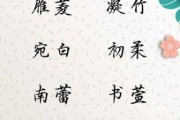 雁菱 凝竹
宛白 初柔
南蕾 书萱